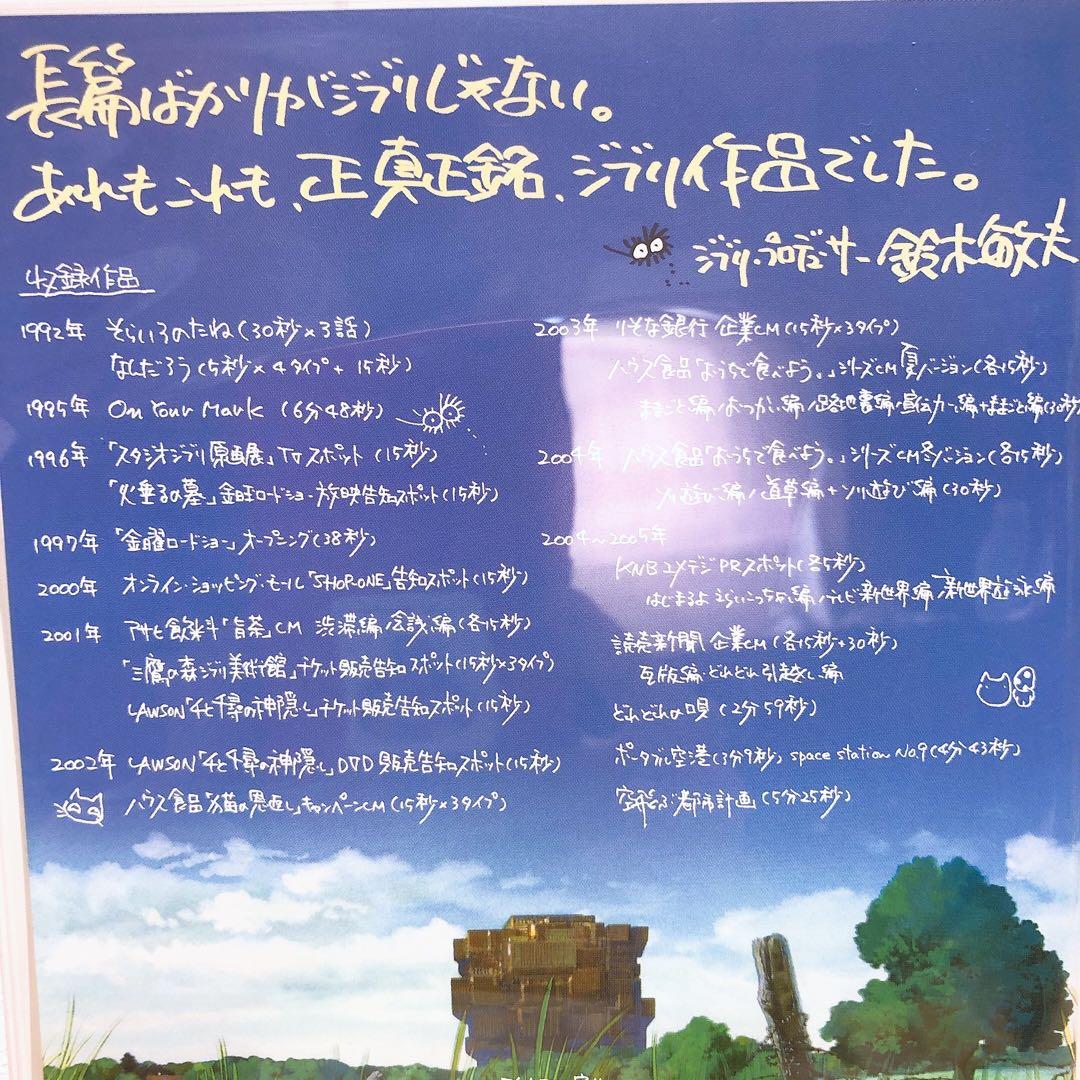 長篇ばかりがジブリじゃない。
あれもこれも、正真正銘、ジブリ作品でした。
ジブリ・プロデューサー 鈴木敏夫
収録作品
1992年 そらいろのたね(30秒×3話)
なんだろう(5秒×4タイプ+15秒)
1995年 On Your Mark (6分48秒)
1996年 「スタジオジブリ原画展」TVスポット (15秒)
「火垂るの墓」金曜ロードショー放映告知スポット(15秒)
1997年 「金曜ロードショー」オープニング(38秒)
2000年 オンライン・ショッピング・モール「SHOP-ONE」告知スポット(15秒)
2001年 アサヒ飲料「旨茶」CM 渋滞編/会議編(各15秒)
「三鷹の森ジブリ美術館」チケット販売告知スポット(15秒×3タイプ)
LAWSON「千と千尋の神隠し」チケット販売告知スポット(15秒)
2002年 LAWSON「千と千尋の神隠し」DVD販売告知スポット(15秒)
ハウス食品「猫の恩返し」キャンペーンCM(15秒×3タイプ)
2003年 りそな銀行 企業CM(15秒×3タイプ)
ハウス食品「おうちで食べよう。」シリーズCM夏バージョン(各15秒)
ままごと編/おつかい編/路地裏編+ままごと編(30秒)
2004年 ハウス食品「おうちで食べよう。」シリーズCM冬バージョン(各15秒)
ソリ遊び編/道草編+ソリ遊び編(30秒)
2004〜2005年
KNBユメデジPRスポット(各5秒)
はじまるよ えらいこっちゃ編/テレビ新世界編/新世界だよ編
読売新聞 企業CM(各15秒+30秒)
瓦版編・どれどれ引越し編
どれどれの唄(2分59秒)
ポータブル空港(3分9秒) space station No.9(4分43秒)
空飛ぶ都市計画(5分25秒)